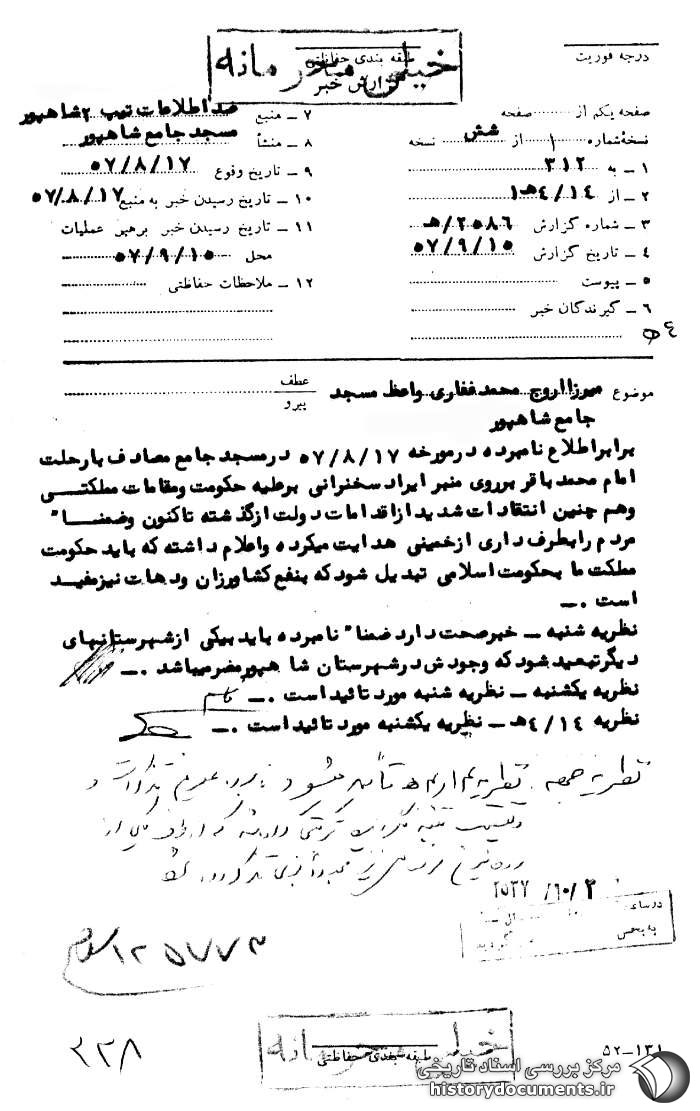 خیلی محرمانه
طبقه بندی حفاظتی
گزارش خبر
درجه فوریت
صفحه یکم از صفحه
نسخه شماره ۱ از شش نسخه
۱ ـ به ۳۱۲
۲ ـ از ۴/۱۴هـ۱
۳ ـ شماره گزارش ۲۵۸۶/هـ
۴ ـ تاریخ گزارش ۵۷/۹/۱۵
۵ ـ پیوست
۶ ـ گیرندگان خبر
۷ ـ منبع ضد اطلاعات تیپ ۲ شاهپور
۸ ـ منشأ مسجد جامع شاهپور
۹ ـ تاریخ وقوع ۵۷/۸/۱۷
۱۰ ـ تاریخ رسیدن خبر به منبع ۵۷/۸/۱۷
۱۱ ـ تاریخ رسیدن خبر برهبر عملیات
محل ۵۷/۹/۱۵
۱۲ ـ ملاحظات حفاظتی
موضوع میرزا اروج محمد غفاری واعظ مسجد
جامع شاهپور
عطف
پیرو
برابر اطلاع نامبرده در مورخه ۵۷/۸/۱۷ در مسجد جامع مصادف با رحلت
امام محمد باقر برروی منبر ایراد سخنرانی برعلیه حکومت ومقامات مملکتی
وهم چنین انتقادات شدید از اقدامات دولت ازگذشته تاکنون وضمنا"
مردم را بطرفداری ازخمینی هدایت میکرده واعلام داشته که باید حکومت
مملکت ما بحکومت اسلامی تبدیل شود که بنفع کشاورزان ودهات نیز مفید
است .ـ
نظریه شنبه ـ خبر صحت دارد ضمنا" نامبرده باید بیکی ازشهرستانهای
دیگر تبعید شود که وجودش درشهرستان شاهپور مضر میباشد .ـ
نظریه یکشنبه ـ نظریه شنبه مورد تائید است .ـ
نظریه ۴/۱۴هـ ـ نظریه یکشنبه مورد تائید است .ـ
نظریه جمعه . نظریه ۴ارهـ تأیید میشود
۲۵۳۷/۱۰/۲
۱۲۵۷۷۳
۲۲۸
خیلی محرمانه
طبقه بندی حفاظتی
۵۲ـ۱۳۱
مرکز بررسی اسناد تاریخی
historydocuments.ir